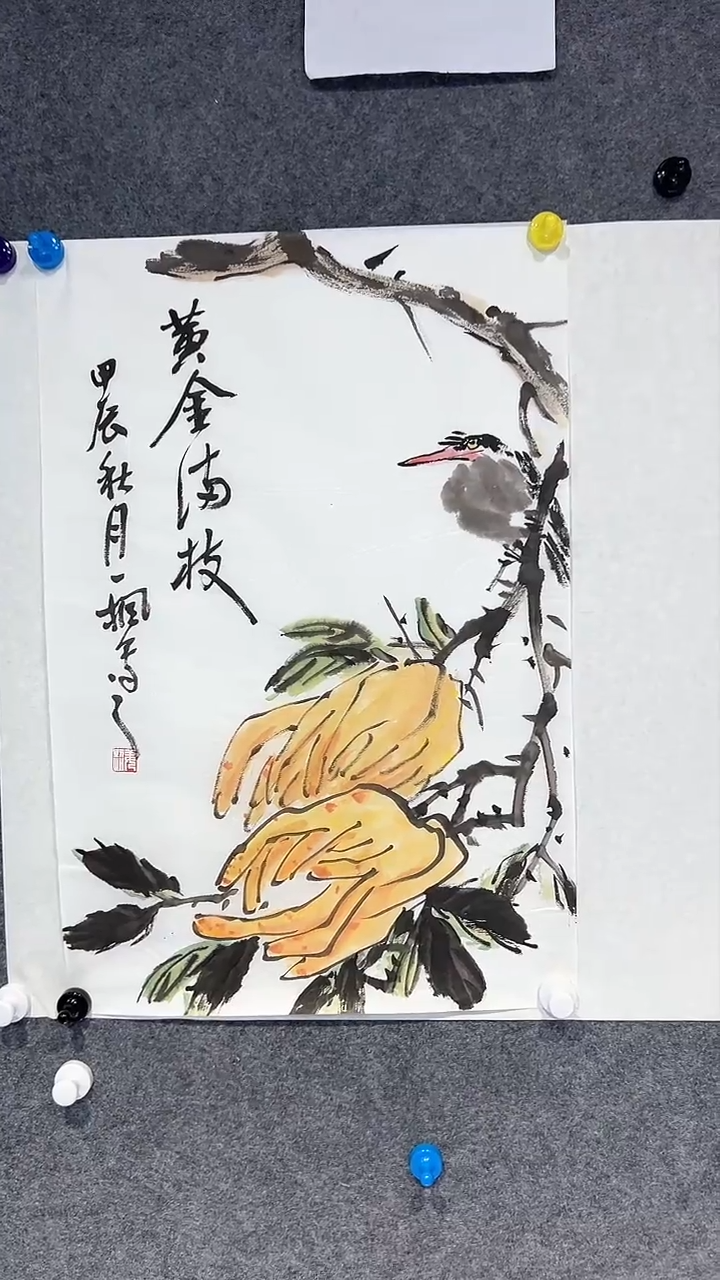 黄金满枝
甲辰秋月一枫写之